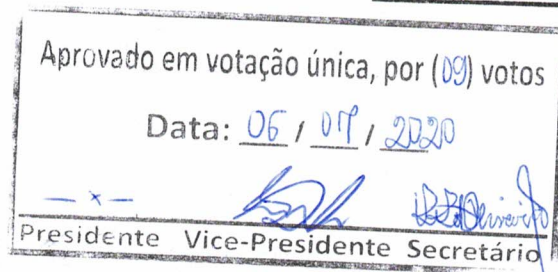 Aprovado em votação única, por (09) votos
Data: 06 / 07 / 2020
— x —
Presidente Vice-Presidente Secretário